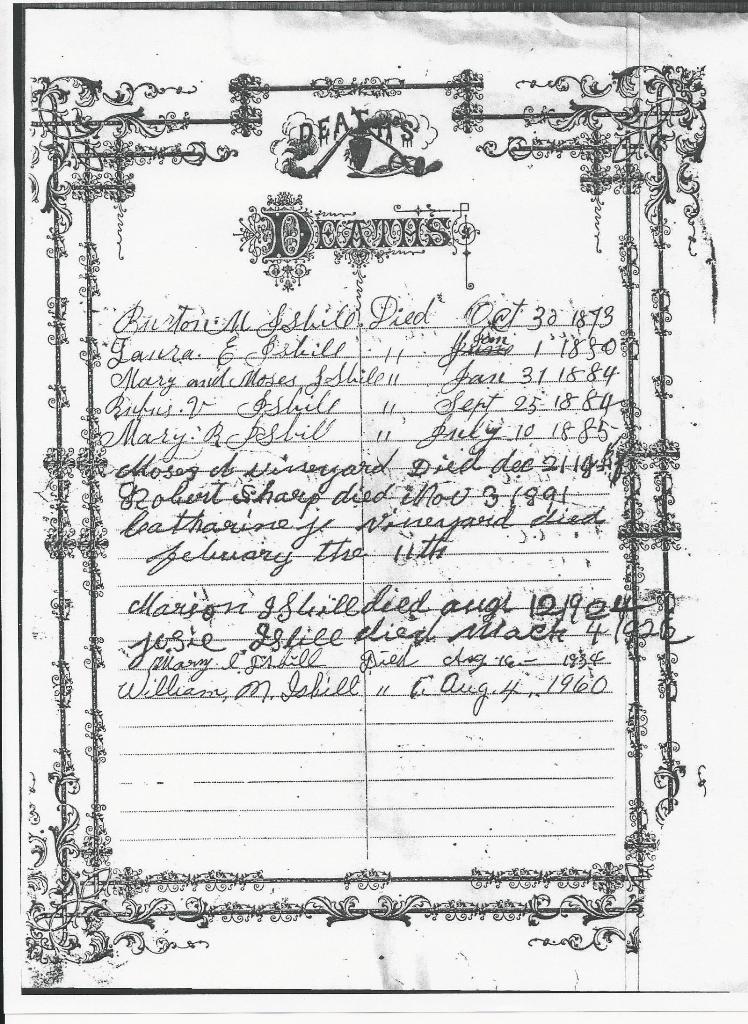 DEATHS
DEATHS
Burton. M Isbill. Died Oct 30 1873
Laura. E Isbill " Jan 1 1880
Mary and Moses Isbill " Jan 31 1884
Rufus. V Isbill " Sept 25 1884
Mary. R Isbill " July 10 1885
Moses A Vineyard Died dec 21
Robert Sharp died Nov 3 1891
Catharine Vineyard died
febuary the 11th
Marion Isbill died aug 12 1924
Josie Isbill died Mach 4 1926
Mary Isbill Died Aug 16 - 1934
William, M. Isbill " Aug 4, 1960